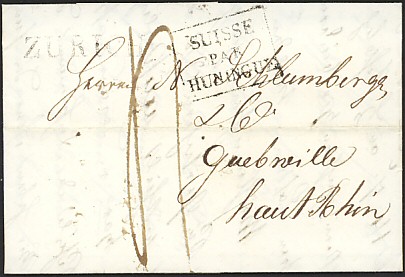 ZURI
SUISSE
PAR
HUNINGUE
Herren N. Schlumberger
& Co
Guebwille
haut Rhin